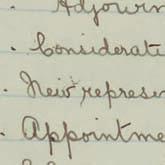 · Adjourn
· Considerati
· New represen
· Appointme